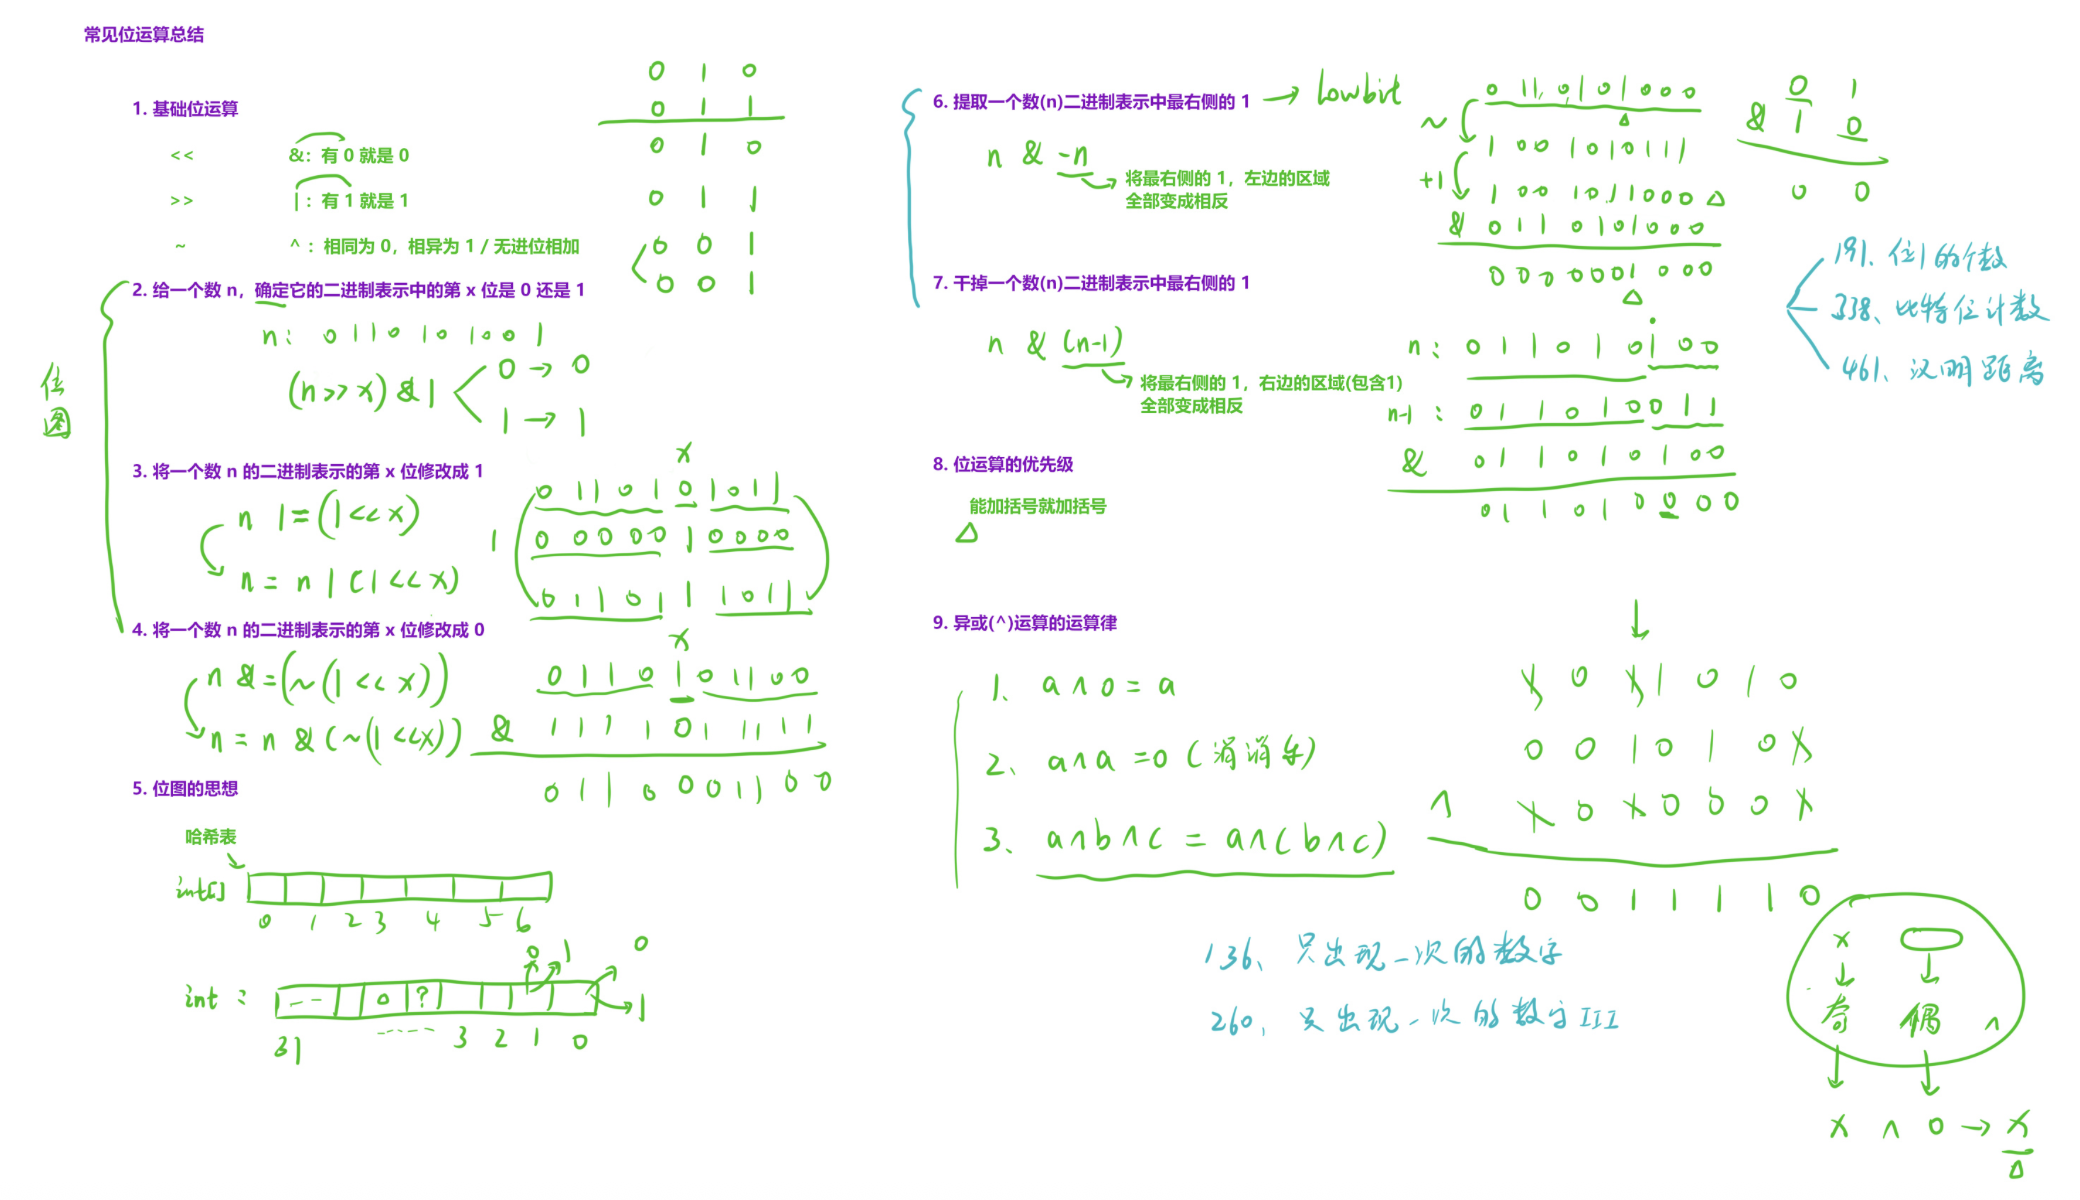 常见位运算总结
1. 基础位运算
<< &: 有 0 就是 0
>> |: 有 1 就是 1
~ ^: 相同为 0，相异为 1 / 无进位相加
0 1 0
0 1 1
0 1 0
0 1 1
0 0 1
0 0 1
位图
2. 给一个数 n，确定它的二进制表示中的第 x 位是 0 还是 1
n: 0 1 1 0 1 0 1 0 0 1
(n >> x) & 1
0 → 0
1 → 1
3. 将一个数 n 的二进制表示的第 x 位修改成 1
n |= (1 << x)
n = n | (1 << x)
x
0 1 1 0 1 0 1 0 1 1
| 0 0 0 0 0 1 0 0 0 0
0 1 1 0 1 1 1 0 1 1
4. 将一个数 n 的二进制表示的第 x 位修改成 0
n &= (~(1 << x))
n = n & (~(1 << x))
x
0 1 1 0 1 0 1 1 0 0
& 1 1 1 1 0 1 1 1 1 1
0 1 1 0 0 0 1 1 0 0
5. 位图的思想
哈希表
int[]
0 1 2 3 4 5 6
0 1 0
int: 0 ? 1
31 3 2 1 0
6. 提取一个数(n)二进制表示中最右侧的 1 → lowbit
n & -n
将最右侧的 1，左边的区域
全部变成相反
0 1 1 0 1 0 1 0 0 0
~ 1 0 0 1 0 1 0 1 1 1
+1 1 0 0 1 0 1 1 0 0 0
& 0 1 1 0 1 0 1 0 0 0
0 0 0 0 0 0 1 0 0 0
0 1
& 1 0
0 0
191、位1的个数
338、比特位计数
461、汉明距离
7. 干掉一个数(n)二进制表示中最右侧的 1
n & (n-1)
将最右侧的 1，右边的区域(包含1)
全部变成相反
n: 0 1 1 0 1 0 1 0 0
n-1: 0 1 1 0 1 0 0 1 1
& 0 1 1 0 1 0 1 0 0
0 1 1 0 1 0 0 0 0
8. 位运算的优先级
能加括号就加括号
9. 异或(^)运算的运算律
1、a ^ 0 = a
2、a ^ a = 0 (消消乐)
3、a ^ b ^ c = a ^ (b ^ c)
1 0 1 1 0 1 0
0 0 1 0 1 0 1
^ 1 0 1 0 0 0 1
0 0 1 1 1 1 0
136、只出现一次的数字
260、只出现一次的数字 III
x
奇 偶 ^
x ^ 0 → x